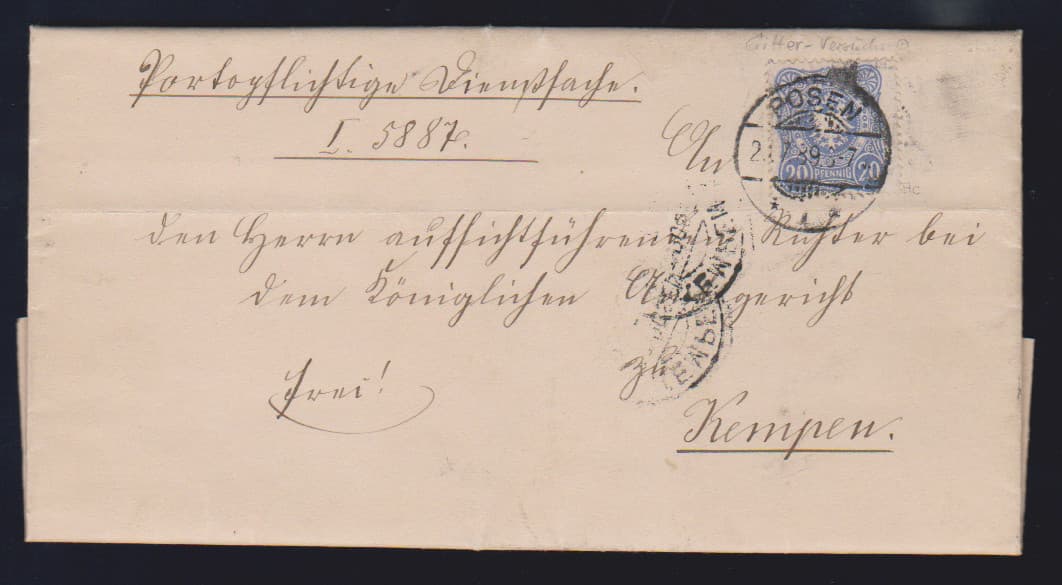 Gitter-Versuchs
Portopflichtige Dienstsache.
I. 5887.
POSEN
20 PFENNIG 20
An
den Herrn aufsichtführenden Richter bei
dem Königlichen Amtsgericht
zu
frei!
Kempen.